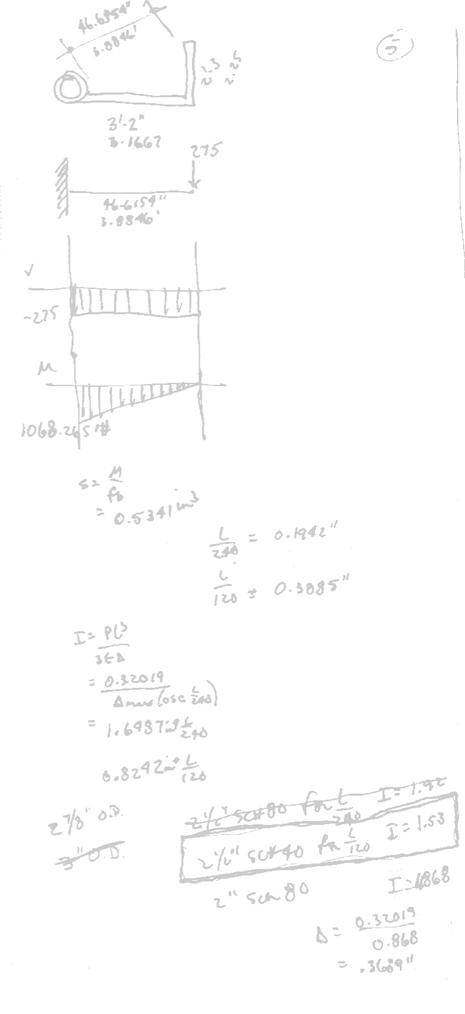 46.6154"
3.8846'
5
3'-2"
3.1667
275
46.6154"
3.8846'
V
-275
M
1068.265 '#
S = M/fb
= 0.5341 in³
L/240 = 0.1942"
L/120 = 0.3885"
I = PL³/3EΔ
= 0.32019/Δmax (use L/240)
= 1.6487 in⁴ L/240
0.8242 in⁴ L/120
2 7/8" O.D.
3" O.D.
2 1/2" SCH 80 for L/240 I = 1.92
2 1/2" SCH 40 for L/120 I = 1.53
2" Sch 80
Δ = 0.32019/0.868
= .3689"